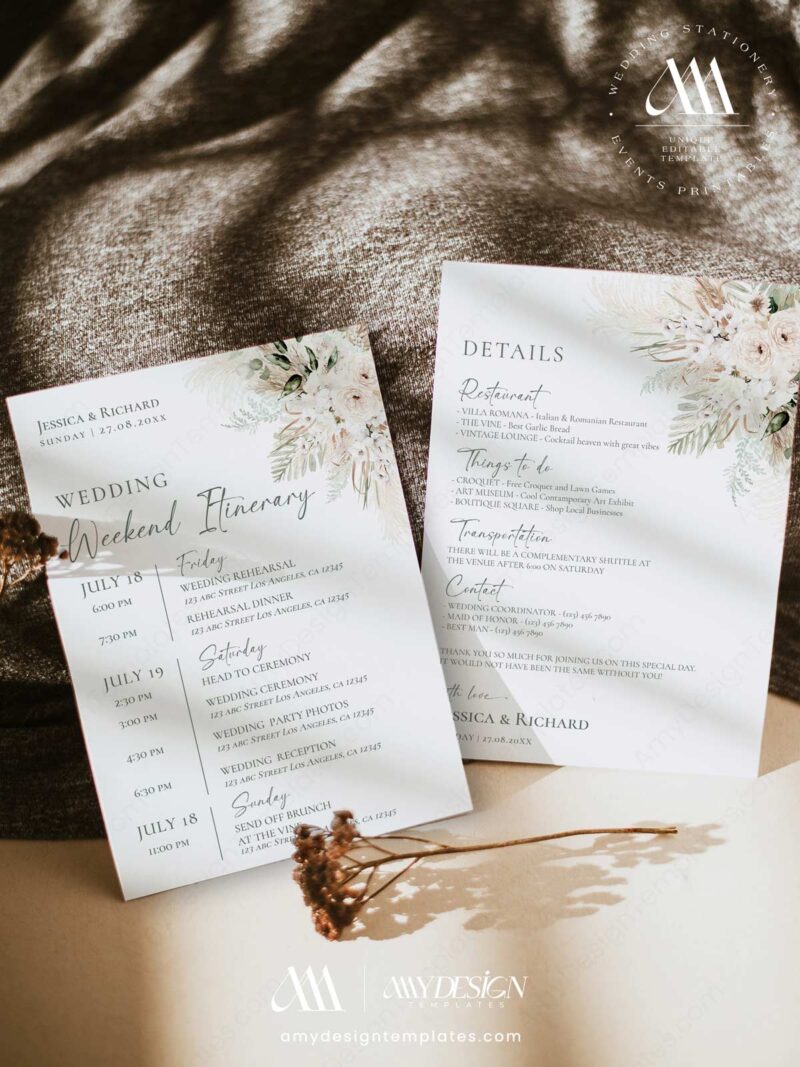 WEDDING STATIONERY
EVENTS PRINTABLES
UNIQUE
EDITABLE
TEMPLATE
JESSICA & RICHARD
SUNDAY | 27.08.20XX
WEDDING
Weekend Itinerary
Friday
JULY 18
6:00 PM
WEDDING REHEARSAL
123 ABC STREET LOS ANGELES, CA 12345
7:30 PM
REHEARSAL DINNER
123 ABC STREET LOS ANGELES, CA 12345
Saturday
JULY 19
2:30 PM
HEAD TO CEREMONY
3:00 PM
WEDDING CEREMONY
123 ABC STREET LOS ANGELES, CA 12345
4:30 PM
WEDDING PARTY PHOTOS
123 ABC STREET LOS ANGELES, CA 12345
6:30 PM
WEDDING RECEPTION
123 ABC STREET LOS ANGELES, CA 12345
Sunday
JULY 18
11:00 PM
SEND OFF BRUNCH
AT THE
123 ABC CA 12345
DETAILS
Restaurant
- VILLA ROMANA - Italian & Romanian Restaurant
- THE VINE - Best Garlic Bread
- VINTAGE LOUNGE - Cocktail heaven with great vibes
Things to do
- CROQUET - Free Croquet and Lawn Games
- ART MUSEUM - Cool Contomporary Art Exhibit
- BOUTIQUE SQUARE - Shop Local Businesses
Transportation
THERE WILL BE A COMPLEMENTARY SHUTTLE AT
THE VENUE AFTER 6:00 ON SATURDAY
Contact
- WEDDING COORDINATOR - (123) 456 7890
- MAID OF HONOR - (123) 456 7890
- BEST MAN - (123) 456 7890
THANK YOU SO MUCH FOR JOINING US ON THIS SPECIAL DAY.
IT WOULD NOT HAVE BEEN THE SAME WITHOUT YOU!
love
SSICA & RICHARD
DAY | 27.08.20XX
AMY DESIGN
TEMPLATES
amydesigntemplates.com